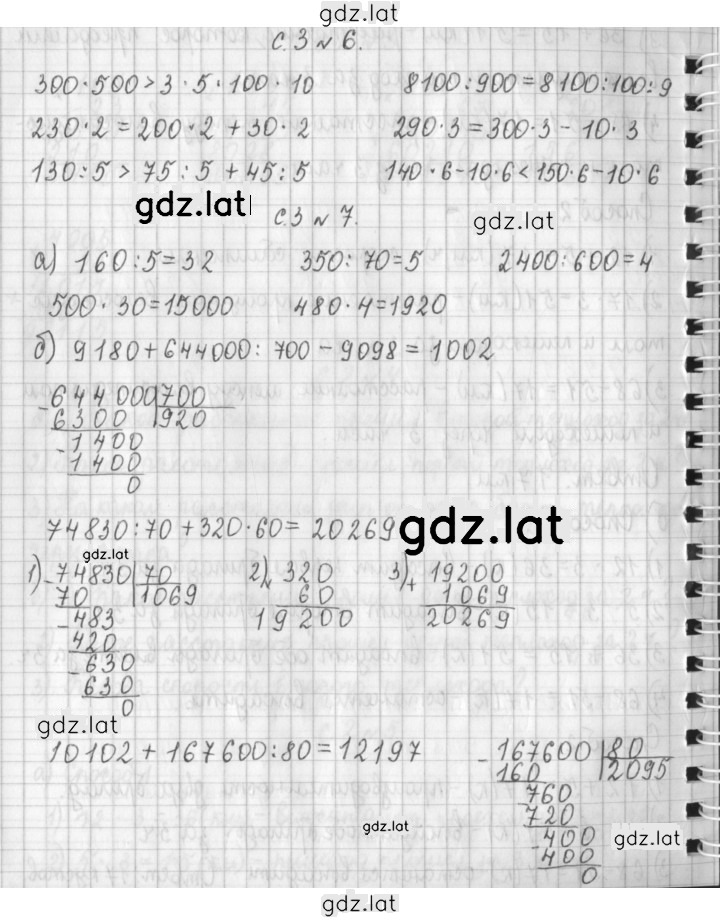 gdz.lat
с.3 № 6.
300·500 > 3·5·100·10    8100:900 = 8100:100:9
230·2 = 200·2 + 30·2    290·3 = 300·3 - 10·3
130:5 > 75:5 + 45:5    140·6-10·6 < 150·6-10·6
gdz.lat
с.3 № 7.
gdz.lat
а) 160:5=32    350:70=5    2400:600=4
500·30=15000    480·4=1920
б) 9180+644000:700-9098=1002
- 644000 | 700
6300 | 920
- 1400
1400
0
74830:70+320·60=20269
gdz.lat
gdz.lat
1) - 74830 | 70    2) × 320    3) + 19200
70 | 1069    60    1069
- 483    19200    20269
420
- 630
630
0
gdz.lat
10102+167600:80=12197
- 167600 | 80
160 | 2095
- 760
720
- 400
400
0
gdz.lat
gdz.lat
gdz.lat